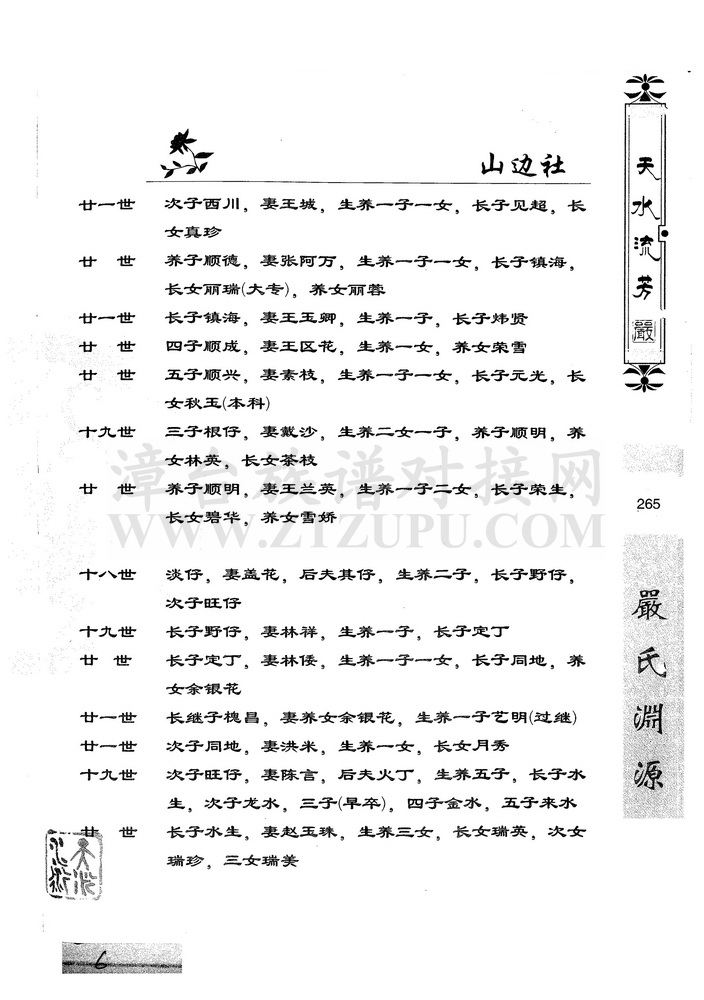 山边社
廿一世 次子西川，妻王城，生养一子一女，长子见超，长
女真珍
廿 世 养子顺德，妻张阿万，生养一子一女，长子镇海，
长女丽瑞(大专)，养女丽蓉
廿一世 长子镇海，妻王玉卿，生养一子，长子炜贤
廿 世 四子顺成，妻王区花，生养一女，养女荣雪
廿 世 五子顺兴，妻素枝，生养一子一女，长子元光，长
女秋玉(本科)
十九世 三子根仔，妻戴沙，生养二女一子，养子顺明，养
女林英，长女茶枝
廿 世 养子顺明，妻王兰英，生养一子二女，长子荣生，
长女碧华，养女雪娇
十八世 淡仔，妻盖花，后夫其仔，生养二子，长子野仔，
次子旺仔
十九世 长子野仔，妻林祥，生养一子，长子定丁
廿 世 长子定丁，妻林倭，生养一子一女，长子同地，养
女余银花
廿一世 长继子槐昌，妻养女余银花，生养一子艺明(过继)
廿一世 次子同地，妻洪米，生养一女，长女月秀
十九世 次子旺仔，妻陈言，后夫火丁，生养五子，长子水
生，次子龙水，三子(早卒)，四子金水，五子来水
廿 世 长子水生，妻赵玉珠，生养三女，长女瑞英，次女
瑞珍，三女瑞美
天水流芳
嚴
265
嚴氏淵源
漳台族谱对接网
WWW.ZTZUPU.COM
6